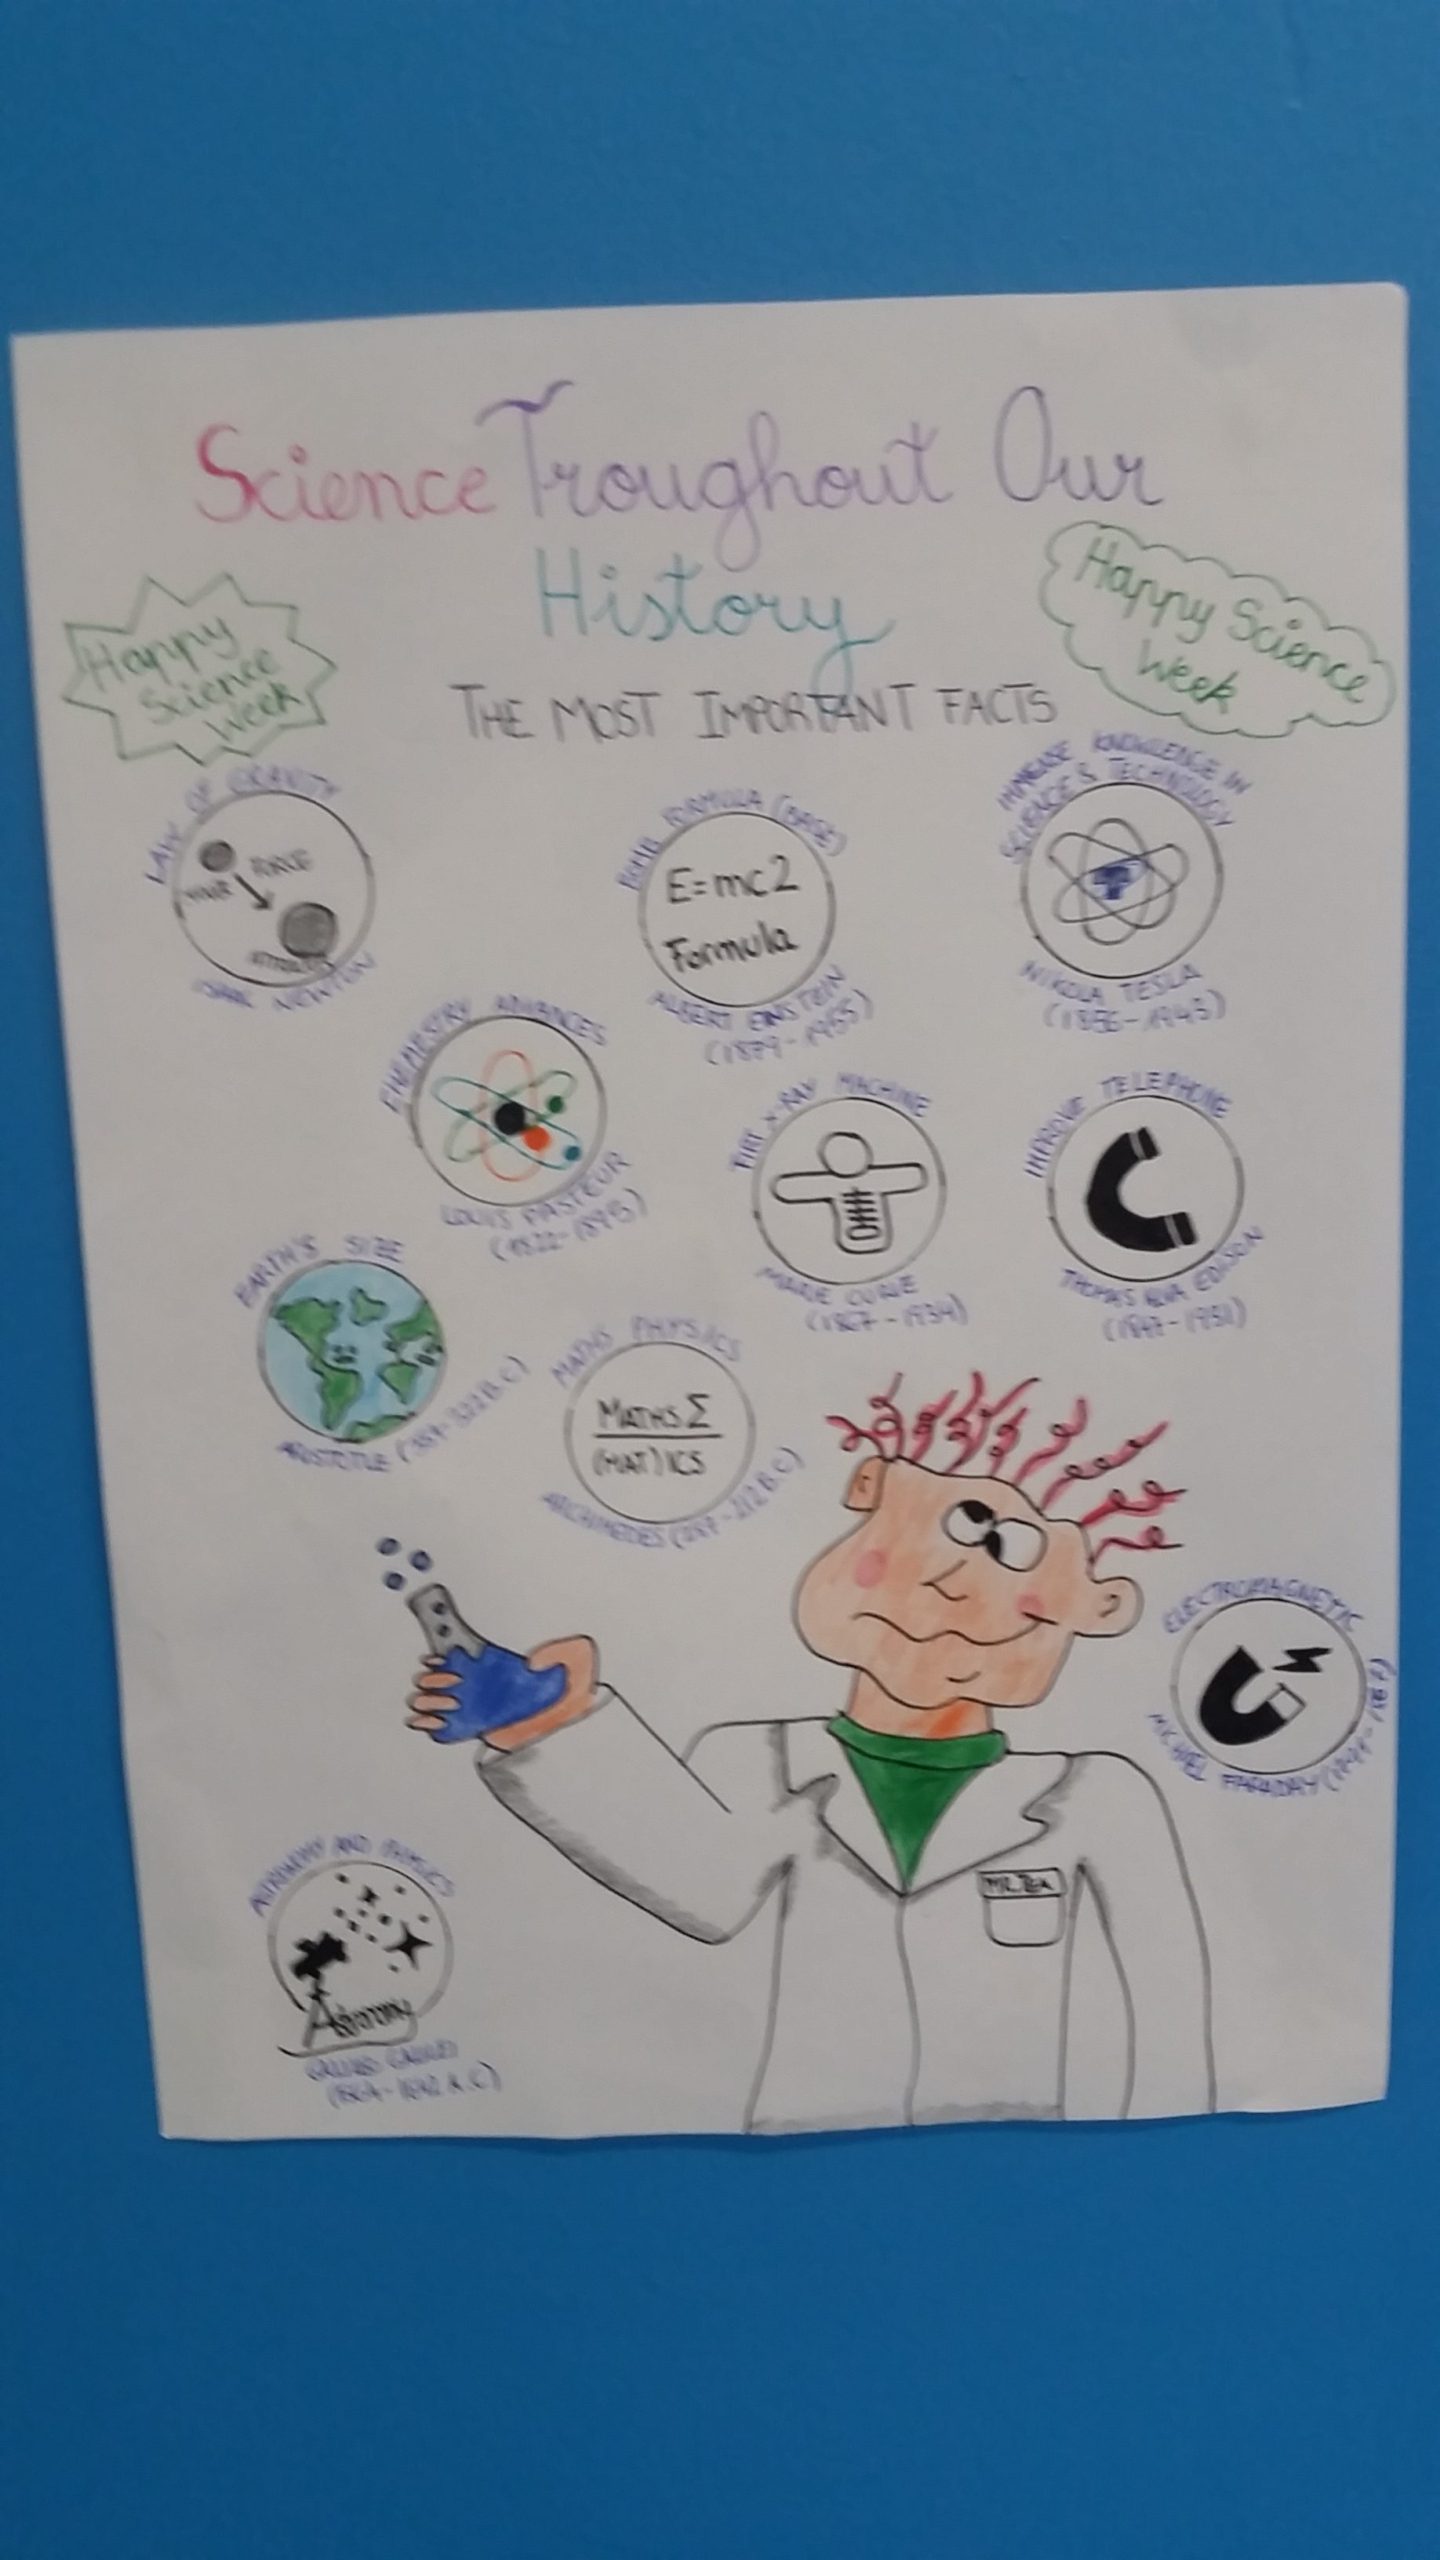 Science Troughout Our
History
THE MOST IMPORTANT FACTS
Happy
Science
Week
Happy Science
Week
LAW OF GRAVITY
FORCE
NEWTON
FORMULA
E=mc2
Formula
ALBERT EINSTEIN
(1879-1955)
KNOWLENCE IN
SCIENCE & TECHNOLOGY
NIKOLA TESLA
(1856-1943)
CHEMESTRY ADVANCES
LOUIS PASTEUR
(1822-1895)
FIRT X-RAY MACHINE
MARIE CURIE
(1867-1934)
IMPROVE TELEPHONE
THOMAS ALVA EDISON
(1847-1931)
EARTH'S SIZE
ARISTOTLE (384-322 B.C)
MATHS PHYSICS
MATHS Σ
(MAT)ICS
ARCHIMEDES (287-212 B.C)
ELECTROMAGNETIC
MICHAEL FARADAY
MR.TEA
ASTRONOMY AND PHYSICS
Astronomy
GALILEI